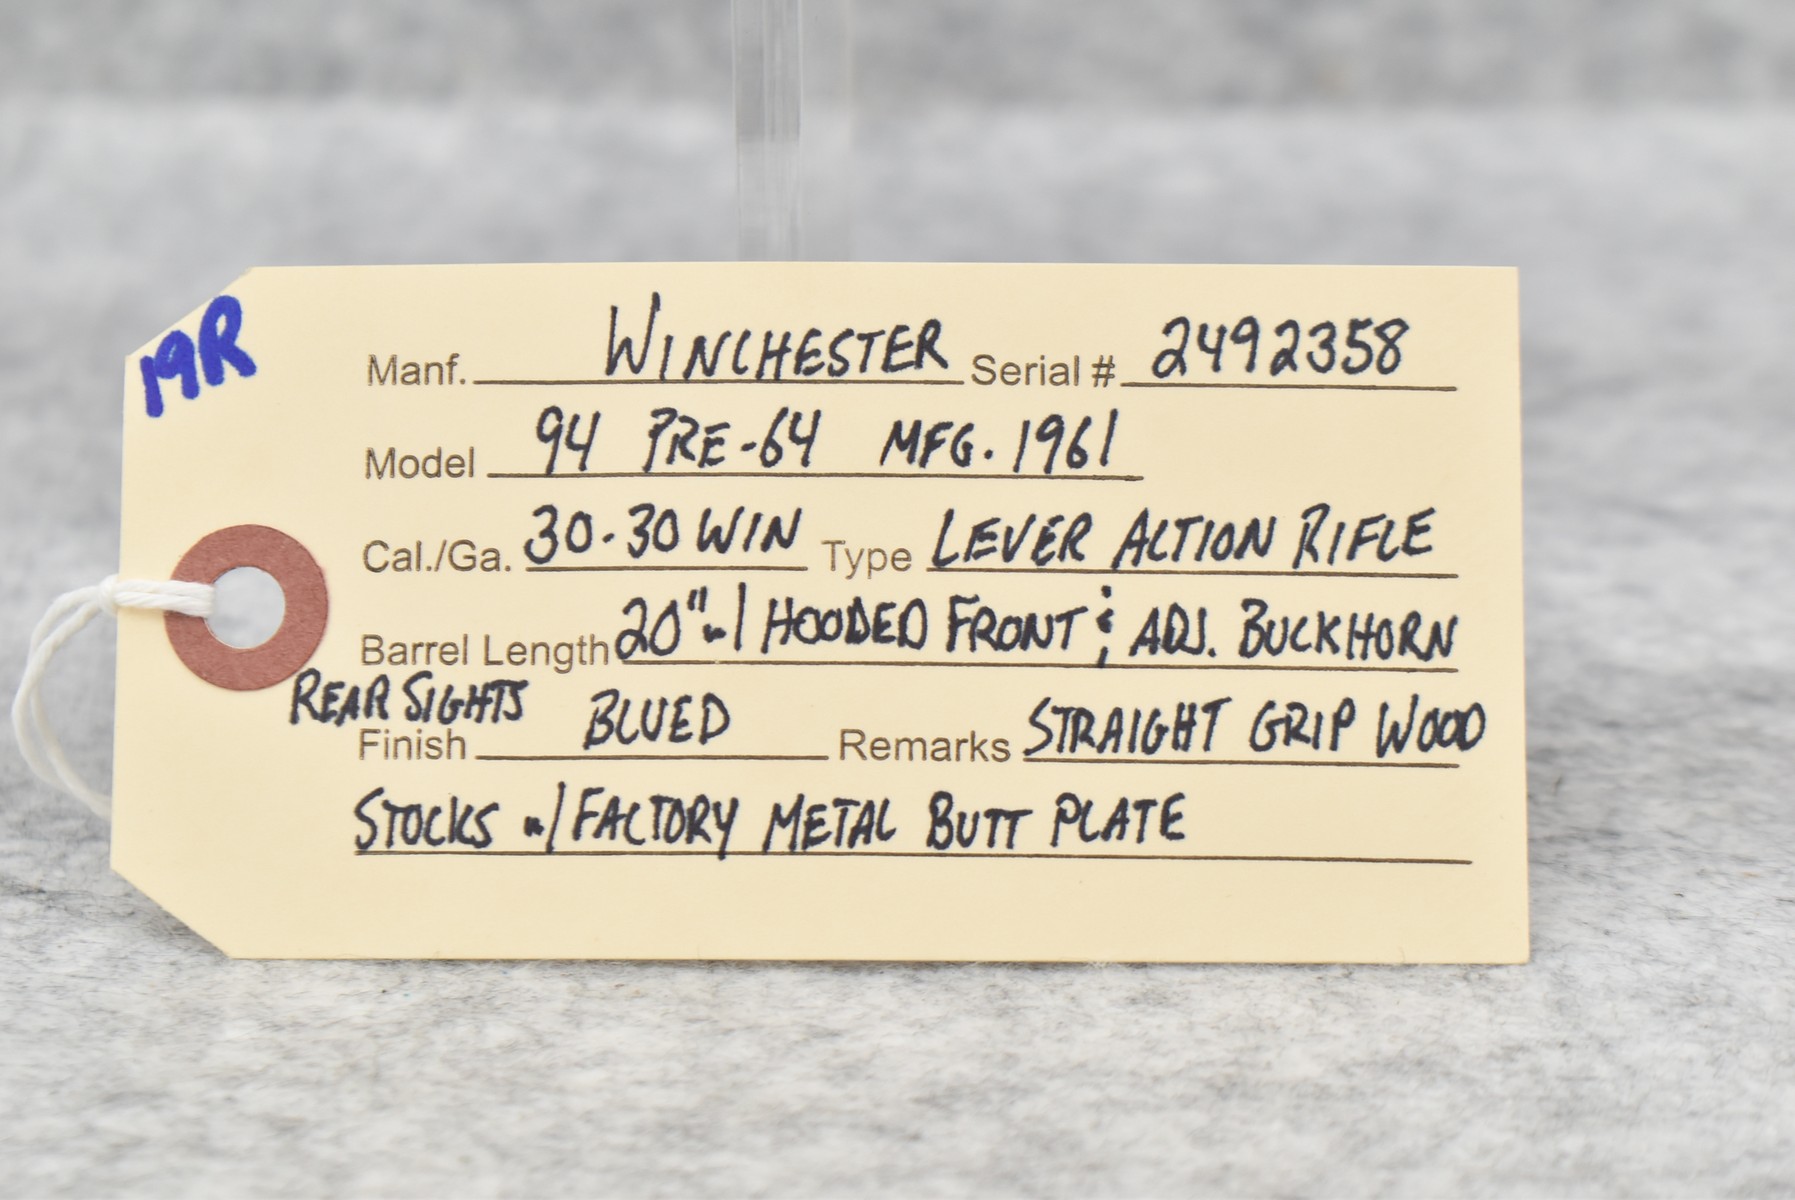 19R
Manf. WINCHESTER Serial # 2492358
Model 94 PRE-64 MFG. 1961
Cal./Ga. 30-30 WIN Type LEVER ACTION RIFLE
Barrel Length 20" w/ HOODED FRONT & ADJ. BUCKHORN
REAR SIGHTS
Finish BLUED Remarks STRAIGHT GRIP WOOD
STOCKS w/ FACTORY METAL BUTT PLATE